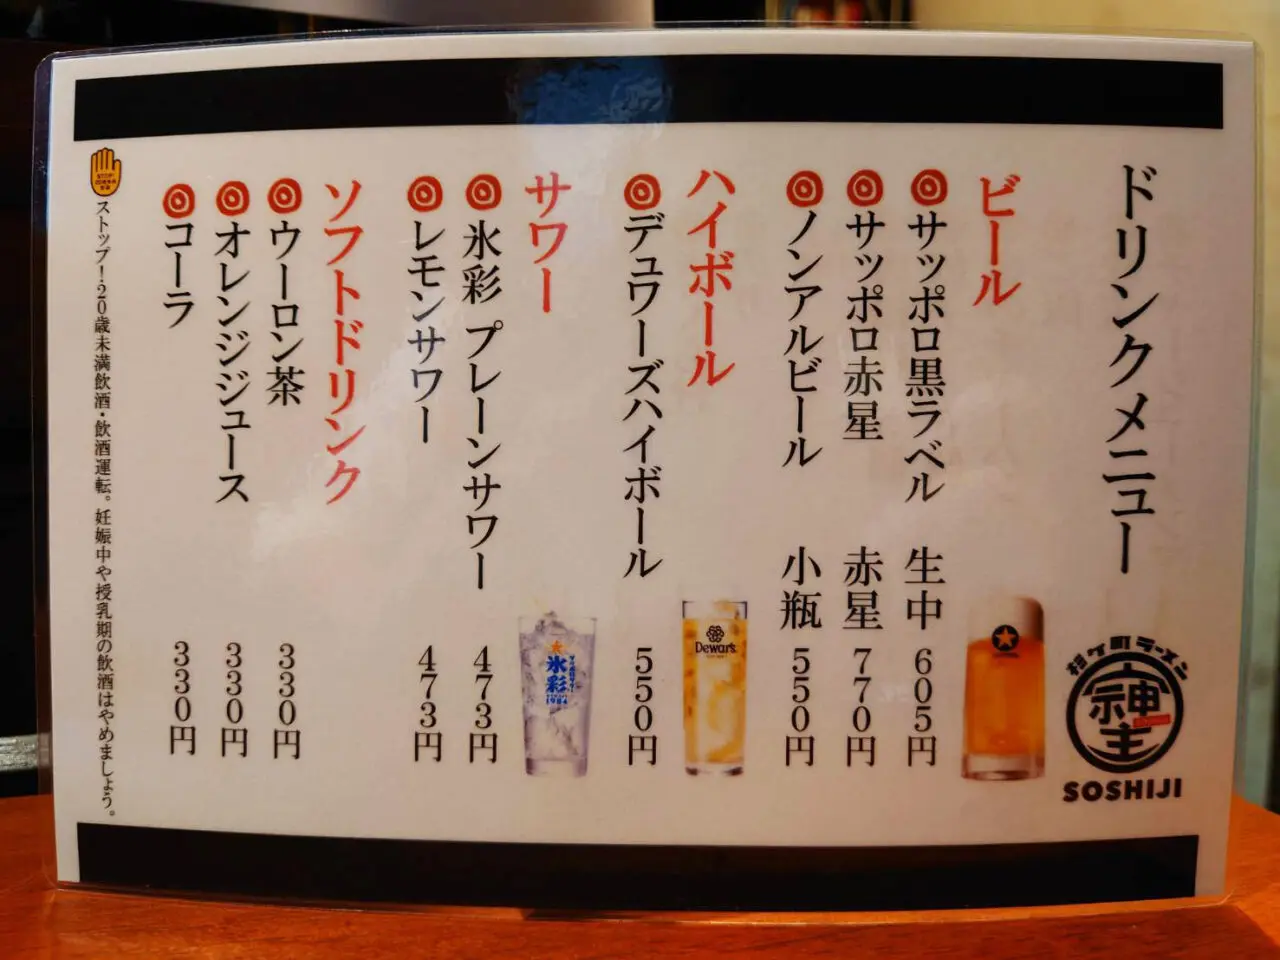 ドリンクメニュー
杉ケ町ラーメン
神主
SOSHIJI
ビール
サッポロ黒ラベル 生中 605円
サッポロ赤星 赤星 770円
ノンアルビール 小瓶 550円
ハイボール
デュワーズハイボール 550円
Dewar's
サワー
氷彩 プレーンサワー 473円
レモンサワー 473円
氷彩
1984
ソフトドリンク
ウーロン茶 330円
オレンジジュース 330円
コーラ 330円
ストップ!20歳未満飲酒・飲酒運転。妊娠中や授乳期の飲酒はやめましょう。